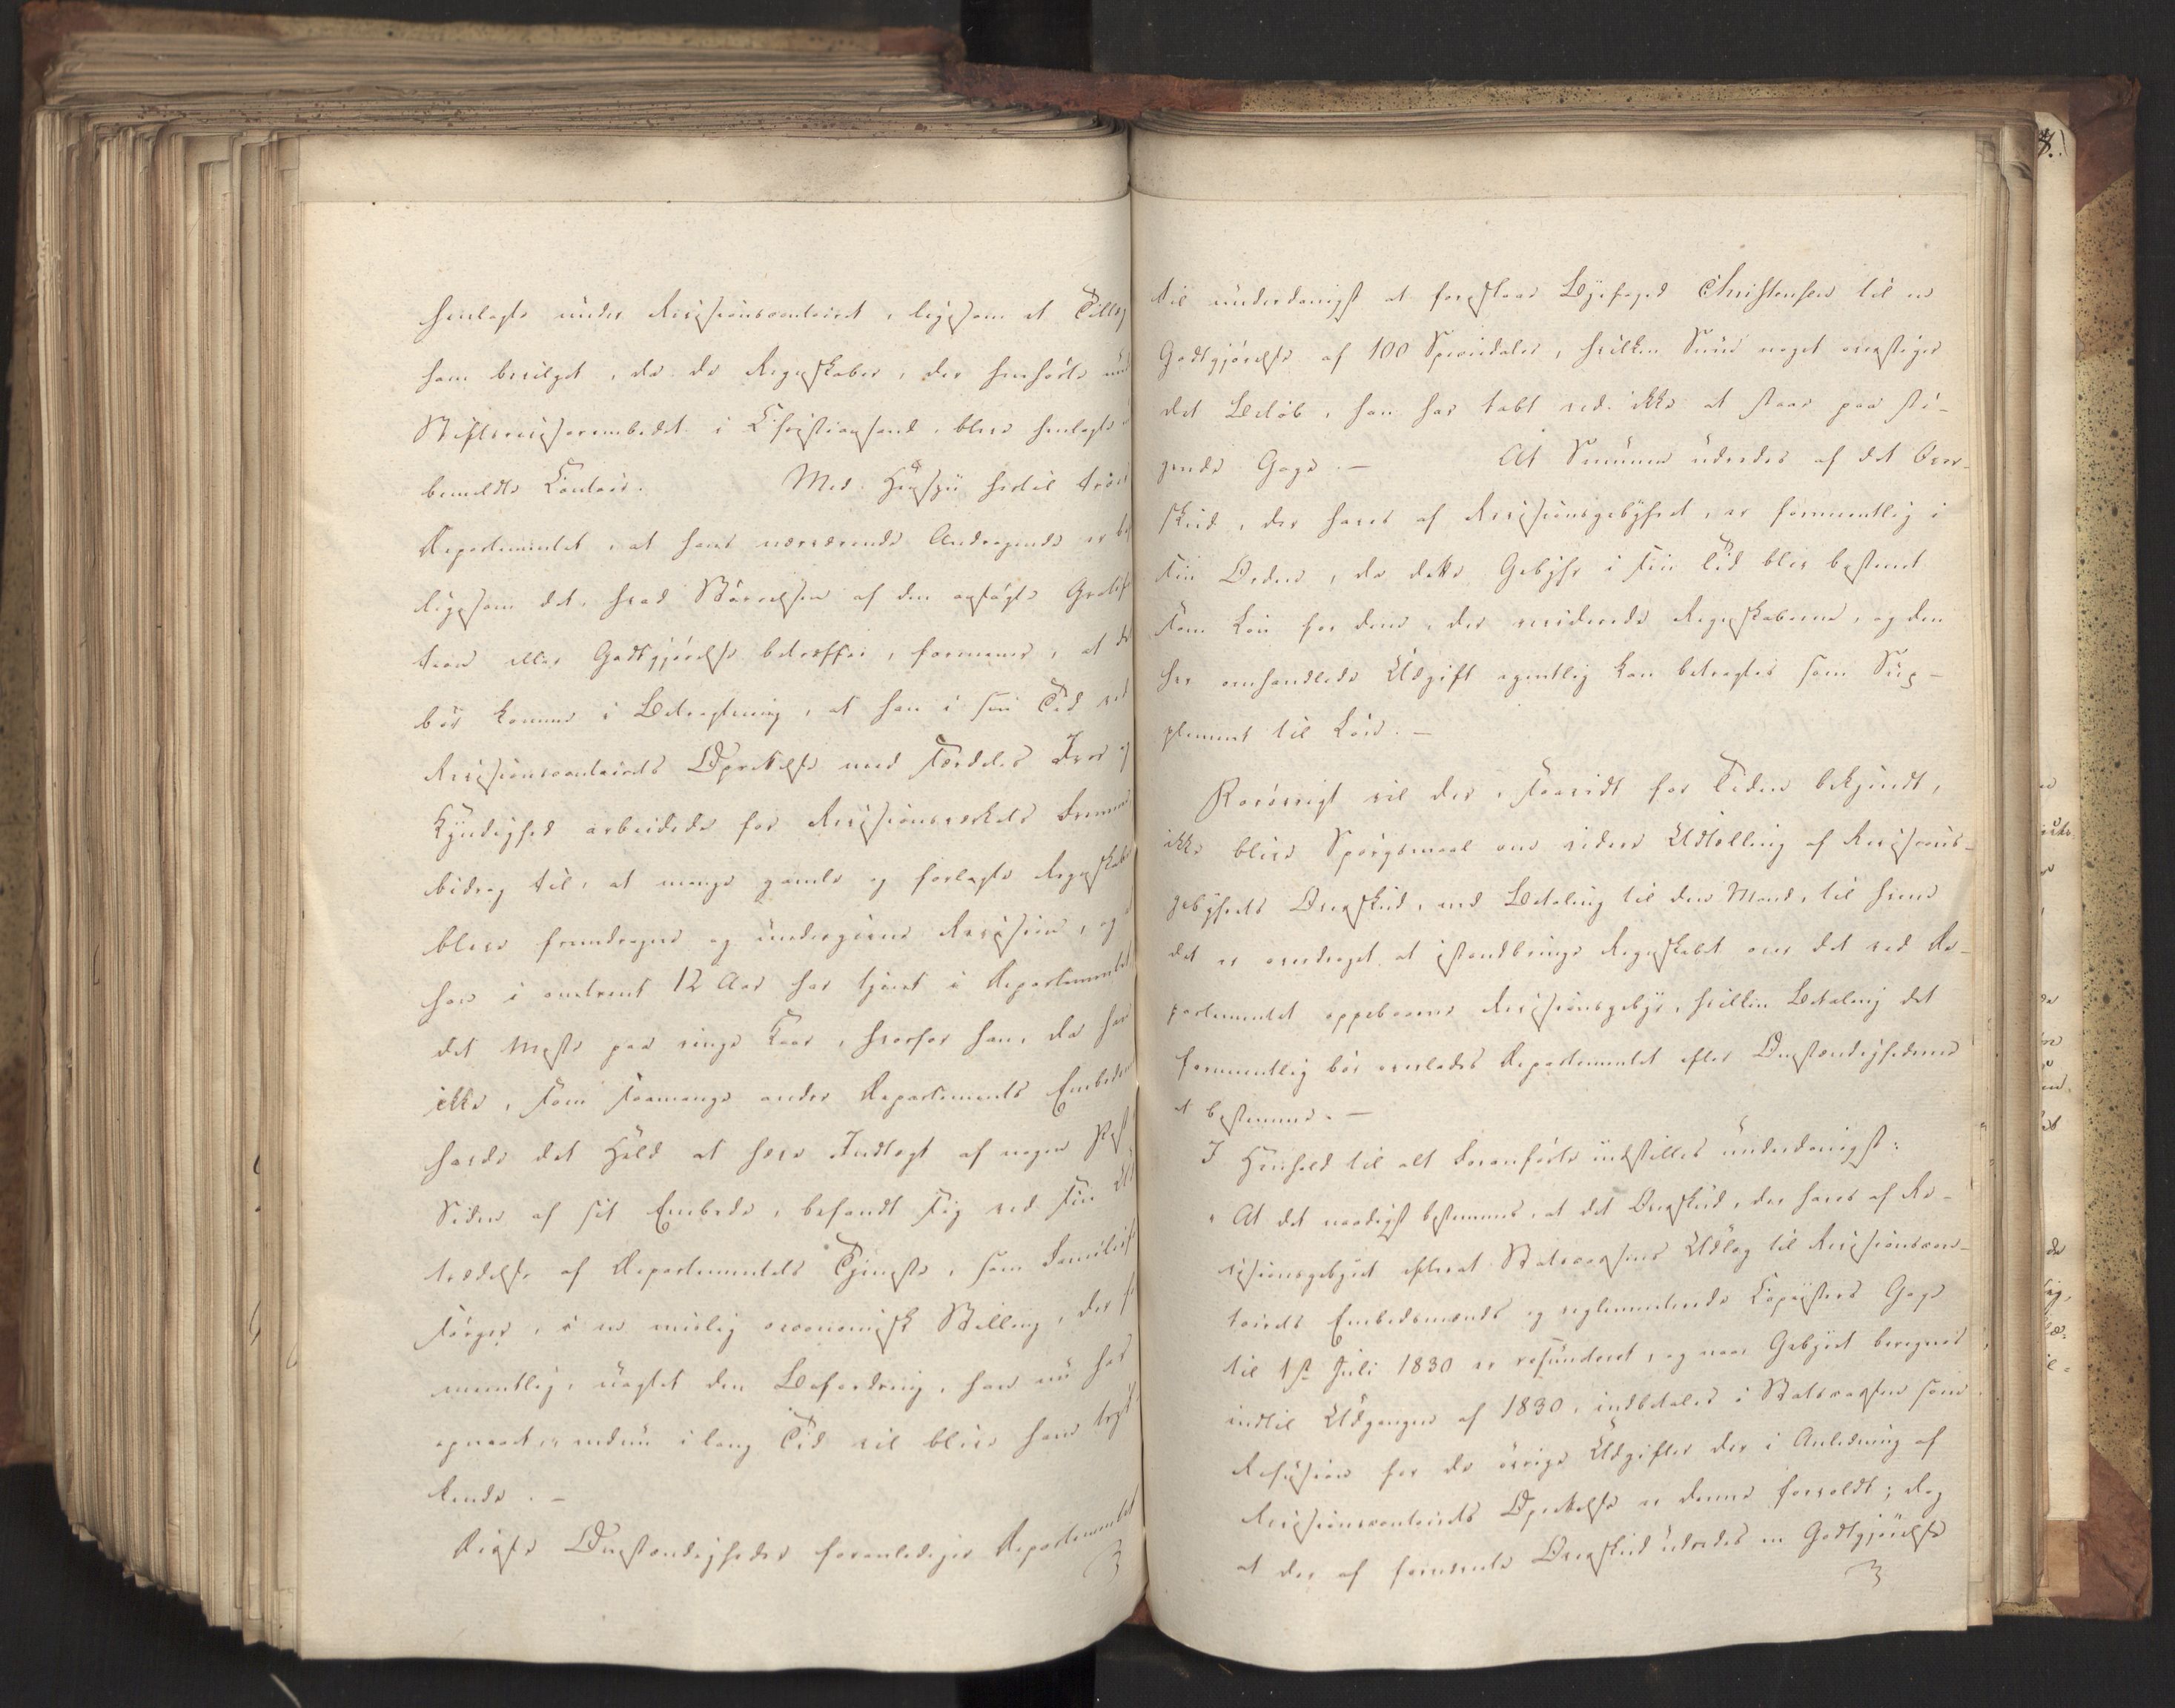 henlagte under Revisionscontoiret, ligesom et Tillæg
ham bevilget, da de Regnskaber, der henhørte und
Stiftsrevisorembedet i Christiansand, bleve henlagte
bemeldte Contoir. Med Hensyn hertil troer
Departementet, at hans nærværende Andragende er
ligesom det, hvad Størrelsen af den ansøgte Gratifi
tion eller Godtgjørelse betræffer, formener, at det
bør komme i Betragtning, at han i sin Tid ved
Revisionscontoirets Oprettelse med særdeles Iver og
Kyndighed arbeidede for Revisionsværkets Fremme
bidrog til, at mange gamle og forlagte Regnskaber
bleve fremdragne og undergivne Revision, og
han i omtrent 12 Aar har tjent i Departementet
det meste paa ringe Kaar, hvorfor han, da han
ikke, som saamange andre Departements Embedsm
havde det Held at have Indtægt af nogen
Siden af sit Embede, befandt sig ved sin Ud
trædelse af Departementets Tjeneste, som Familief
sørger, i en mislig oeconomisk Stilling, der
mentlig, uagtet den Befordring, han nu har
opnaaet, endnu i lang Tid vil blive ham tryk
kende. –
Disse Omstændigheder foranlediger Departementet
til underdanigst at foreslaae Byefoged Christensen til en
Godtgjørelse af 100 Speciedaler, hvilken Sum noget overstiger
det Beløb, han har tabt ved ikke at staae paa sti-
gende Gage. – At Summen udredes af det Over-
skud, der haves af Revisionsgebyhret, er formeentlig i
sin Orden, da dette Gebyhr i sin Tid blev bestemt
som Løn for dem, der reviderede Regnskaberne, og den
her omhandlede Udgift egentlig kan betragtes som Sup-
plement til Løn. –
Forøvrigt vil der, saavidt for Tiden bekjendt,
ikke blive Spørgsmaal om videre Udtælling af Revisions-
gebyhrets Overskud, end Betaling til den Mand, til hvem
det er overdraget at istandbringe Regnskabet over det ved De-
partementet oppebaarne Revisionsgebyr, hvilken Betaling det
formeentlig bør overlades Departementet efter Omstændighederne
at bestemme. –
I Henhold til alt Foranførte indstilles underdanigst:
" At det naadigst bestemmes, at det Overskud, der haves af Re-
visionsgebyret efterat Statscassens Udlæg til Revisionscon-
toirets Embedsmænds og reglementerede Copiisters Gage
til 1ste Juli 1830 er refunderet, og naar Gebyret beregnes
indtil Udgangen af 1830, indbetales i Statscassen som
Refusion for de øvrige Udgifter der i Anledning af
Revisionscontoirets Oprettelse er denne forvoldt; dog
at der af fornævnte Overskud udredes en Godtgjørelse